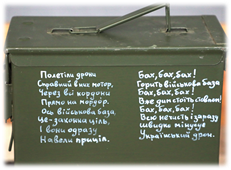 Полетіли дрони
Справний вниз мотор,
Через всі кордони
Прямо на мордор.
Ось військова база,
Це-законна ціль,
І вони одразу
Навели приціл.
Бах, бах, бах!
Горить військова база
Бах, бах, бах!
Вже дим стоїть стовпом!
Бах, бах, бах!
Всю нечисть і заразу
Швидко мінусує
Український дрон.